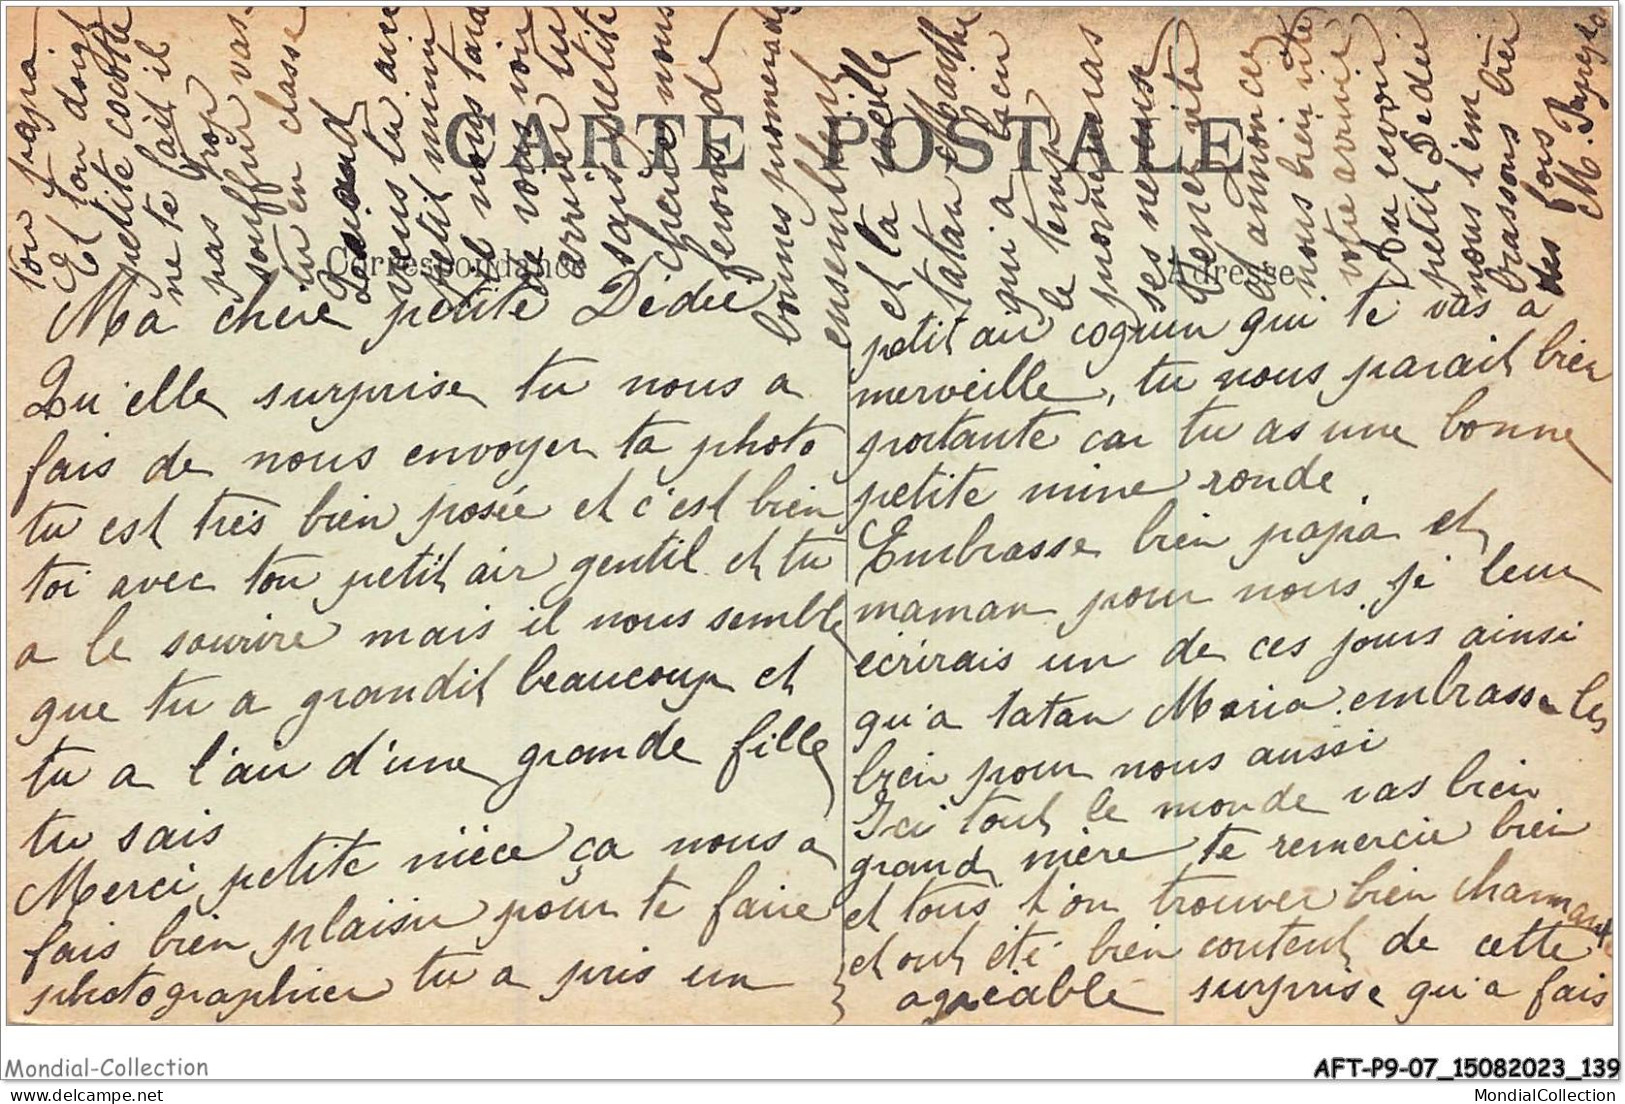 CARTE POSTALE
Correspondance
Adresse
Ma chere petite Dédée
Qu'elle surprise tu nous a
fais de nous envoyer ta photo
tu est très bien posée et c'est bien
toi avec ton petit air gentil et tu
a le sourire mais il nous semble
que tu a grandit beaucoup et
tu a l'air d'une grande fille
tu sais
Merci petite nièce ça nous a
fais bien plaisir pour te faire
photographier tu a pris un
petit air coquin qui te vas a
merveille, tu nous parait bien
portante car tu as une bonne
petite mine ronde
Embrasse bien papa et
maman pour nous je leur
écrirais un de ces jours ainsi
qu'a tatan Maria embrasse les
bien pour nous aussi
Ici tout le monde vas bien
grand mère te remercie bien
et tous t'on trouver bien charmante
et ont été bien content de cette
agréable surprise qu'a fais
ton papa
Et ton doigt
petite cocotte
ne te fait il
pas trop
souffrir vas
tu en classe
Quand
veus tu
petit mimi
il nous tard
de vous voir
arriver tu
sais petite
cherie nous
ferons de
bonnes promenades
ensemble
et la veille
tatan Marthe
qui a
le temps
promeneras
ses
venez vite
d'annoncer
nous bien vite
votre arrivée
Au revoir
petit Dédée
nous t'em
brassons bien
des fois
M.
Mondial-Collection
AFT-P9-07_15082023_139
MondialCollection